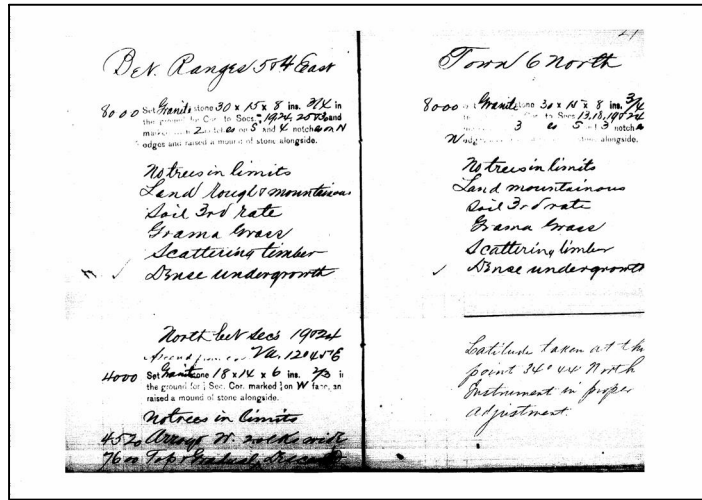 Bet. Ranges 5 & 4 East
8000 Set Granite stone 30 x 15 x 8 ins. 3/4 in
the ground for Cor. to Secs. 19, 24, 25 & 30 and
marked 2 on S and 4 notches on N
edges and raised a mound of stone alongside.
No trees in limits
Land Rough & mountainous
Soil 3rd rate
Grama Grass
Scattering timber
Dense undergrowth
North bet secs 19 & 24
Va. 12° 45' E
4000 Set Granite stone 18 x 14 x 6 ins. 2/3 in
the ground for ¼ Sec. Cor. marked ¼ on W face, an
raised a mound of stone alongside.
No trees in limits
4520 Arroyo W. 20 lks wide
7600 Top Gradual Descent
29
Town 6 North
8000 Granite stone 30 x 15 x 8 ins. 3/4
to Secs 13, 18, 19 & 24
3 on S & 3 notches
N edges stone alongside.
No trees in limits
Land mountainous
Soil 3rd rate
Grama Grass
Scattering timber
Dense undergrowth
Latitude taken at this
point 34° 44 North
Instrument in proper
adjustment.